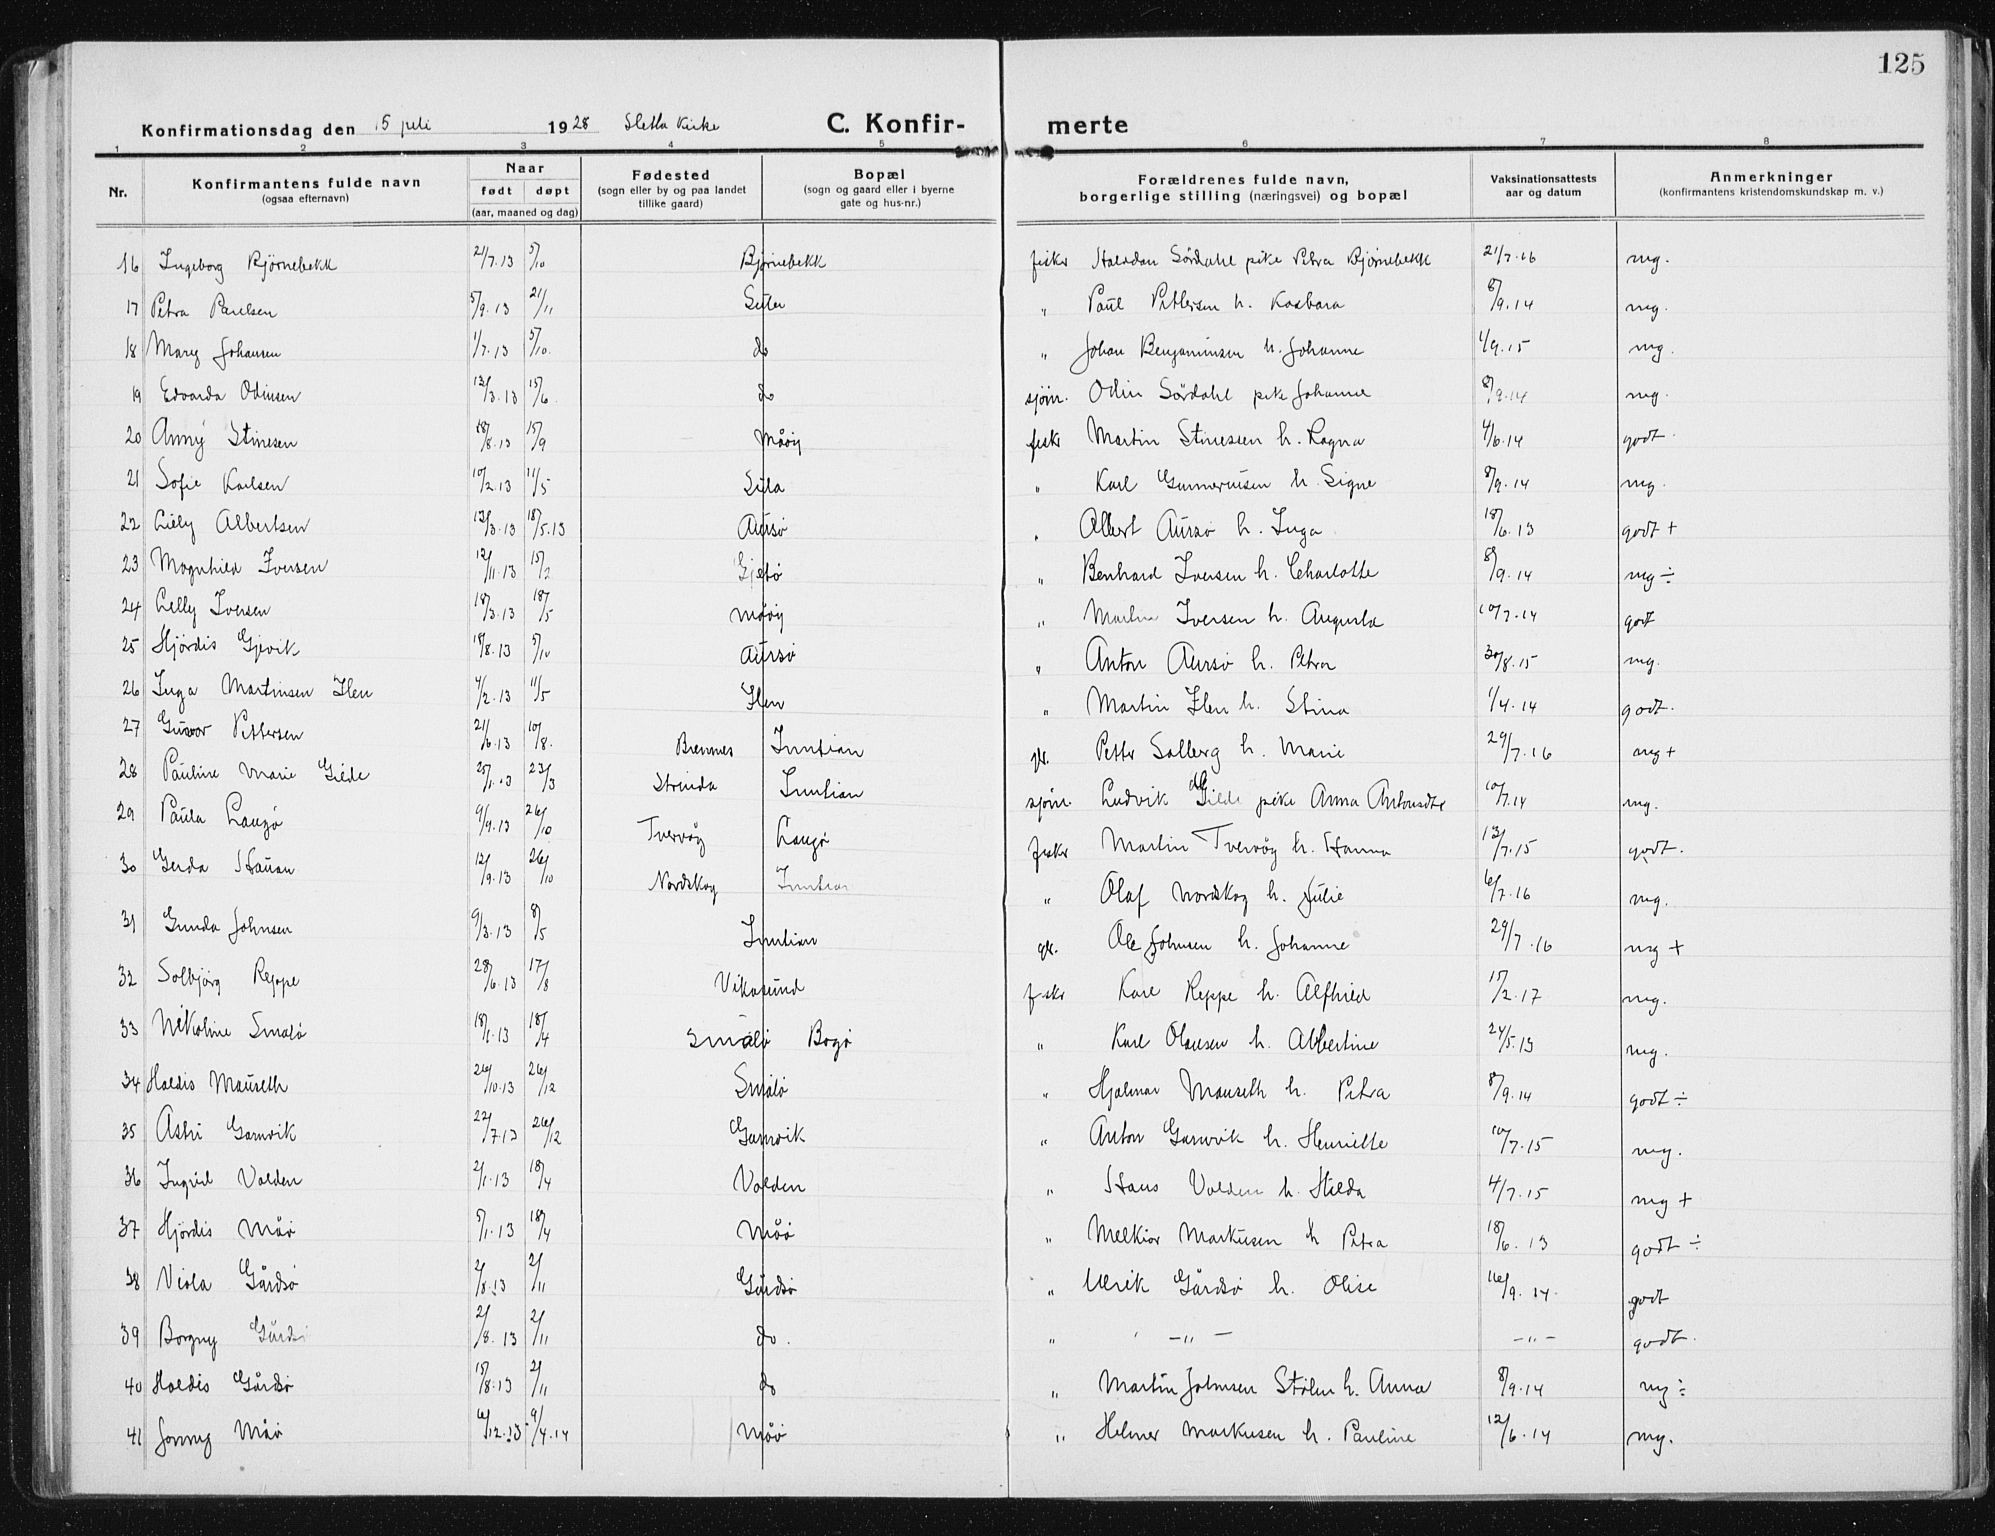 125
Konfirmationsdag den 15 juli 1928 Sletta Kirke C. Konfir- merte
1 2 3 4 5 6 7 8
Nr. Konfirmantens fulde navn (ogsaa efternavn) Naar født døpt (aar, maaned og dag) Fødested (sogn eller by og paa landet tillike gaard) Bopæl (sogn og gaard eller i byerne gate og hus-nr.) Forældrenes fulde navn, borgerlige stilling (næringsvei) og bopæl Vaksinationsattests aar og datum Anmerkninger (konfirmantens kristendomskundskap m. v.)
16 Ingeborg Bjørnebekk 21/7.13 5/10 Bjørnebekk fisker Halvdan Sørdahl pike Petra Bjørnebekk 21/7.16 mg.
17 Petra Paulsen 5/9.13 21/11 Sula " Paul Pettersen h. Kasbara 8/9.14 mg.
18 Mary Johansen 1/7.13 5/10. do " Johan Benjaminsen h. Johanne 1/9.15 mg.
19 Edvarda Odinsen 12/3.13 15/6. do sjøm. Odin Sørdahl pike Johanne 8/9.14 mg.
20 Anny Stinesen 18/8.13 15/9 Måøy fisker Martin Stinesen h. Ragna 4/6.14 godt.
21 Sofie Karlsen 10/2.13 11/5 Sula " Karl Gunnerusen h. Signe 8/9.14 mg.
22 Lilly Albertsen 12/3.13 18/5.13 Aursø " Albert Aursø h. Inga 18/6.13 godt +
23 Magnhild Iversen 12/11.13 15/2 Gjesø " Benhard Iversen h. Charlotte 8/9.14 mg ÷
24 Lilly Iversen 18/3.13 18/5 Måøy " Martin Iversen h. Augusta 10/7.14 godt
25 Hjördis Gjevik 18/8.13 5/10 Aursø " Anton Aursø h. Petra 30/8.15 mg.
26 Inga Martinsen Ilen 4/2.13 11/5 Ilen " Martin Ilen h. Stina 1/4.14 godt.
27 Gunvor Pettersen 21/6.13 10/8. Bremnes Inntian gr. Petter Solberg h. Marie 29/7.16 mg +
28 Pauline Marie Gilde 25/1.13 23/3 Strinda Inntian sjøm. Ludvik Gilde pike Anna Antonsdtr 10/7.14 mg.
29 Paula Langø 9/9.13 26/10 Tvervåg Langø fisker Martin Tvervåg h. Hanna 13/7.15 godt.
30 Gerda Hauan 12/9.13 26/10 Nordskag Inntian " Olaf Nordskag h. Julie 6/7.16 mg.
31 Gunda Johnsen 9/3.13 8/5 Inntian gr. Ole Johnsen h. Johanne 29/7.16 mg +
32 Solbjörg Reppe 28/6.13 17/8 Vikasund fisker Karl Reppe h. Alfhild 15/2.17 mg.
33 Nikoline Småø 18/1.13 18/4 Småø Bogø " Karl Olausen h. Albertine 24/5.13 mg.
34 Haldis Mauseth 26/10.13 26/12 Småø " Hjalmar Mauseth h. Petra 8/9.14 godt ÷
35 Astri Garnvik 22/7.13 26/12 Garnvik " Anton Garnvik h. Henriette 10/7.15 mg.
36 Ingrid Valden 2/1.13 18/4 Valden " Hans Valden h. Hilda 4/7.15 mg +
37 Hjördis Måø 5/1.13 18/4 Måø " Melkior Markusen h Petra 18/6.13 godt ÷
38 Viola Gårdsø 2/8.13 2/11 Gårdsø " Ulrik Gårdsø h. Olise 16/9.14. godt
39 Borgny Gårdsø 2/8.13 2/11 do. " -"- -"- godt.
40 Haldis Gårdsø 15/8.13 2/11 do " Martin Johnsen Stølen h. Anna 8/9.14 mg ÷
41 Jonny Måø 6/12.13 9/4.14 Måø " Helmer Markusen h. Pauline 12/6.14 mg.